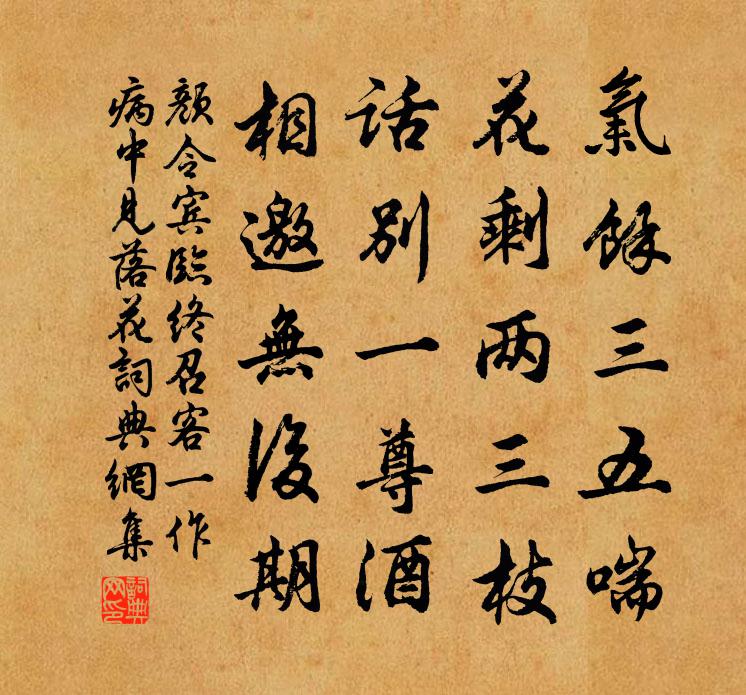 氣餘三五喘
花剩两三枝
話别一尊酒
相邀無後期
顏令宾臨终召客一作
病中見落花詞典網集
詞典
网印